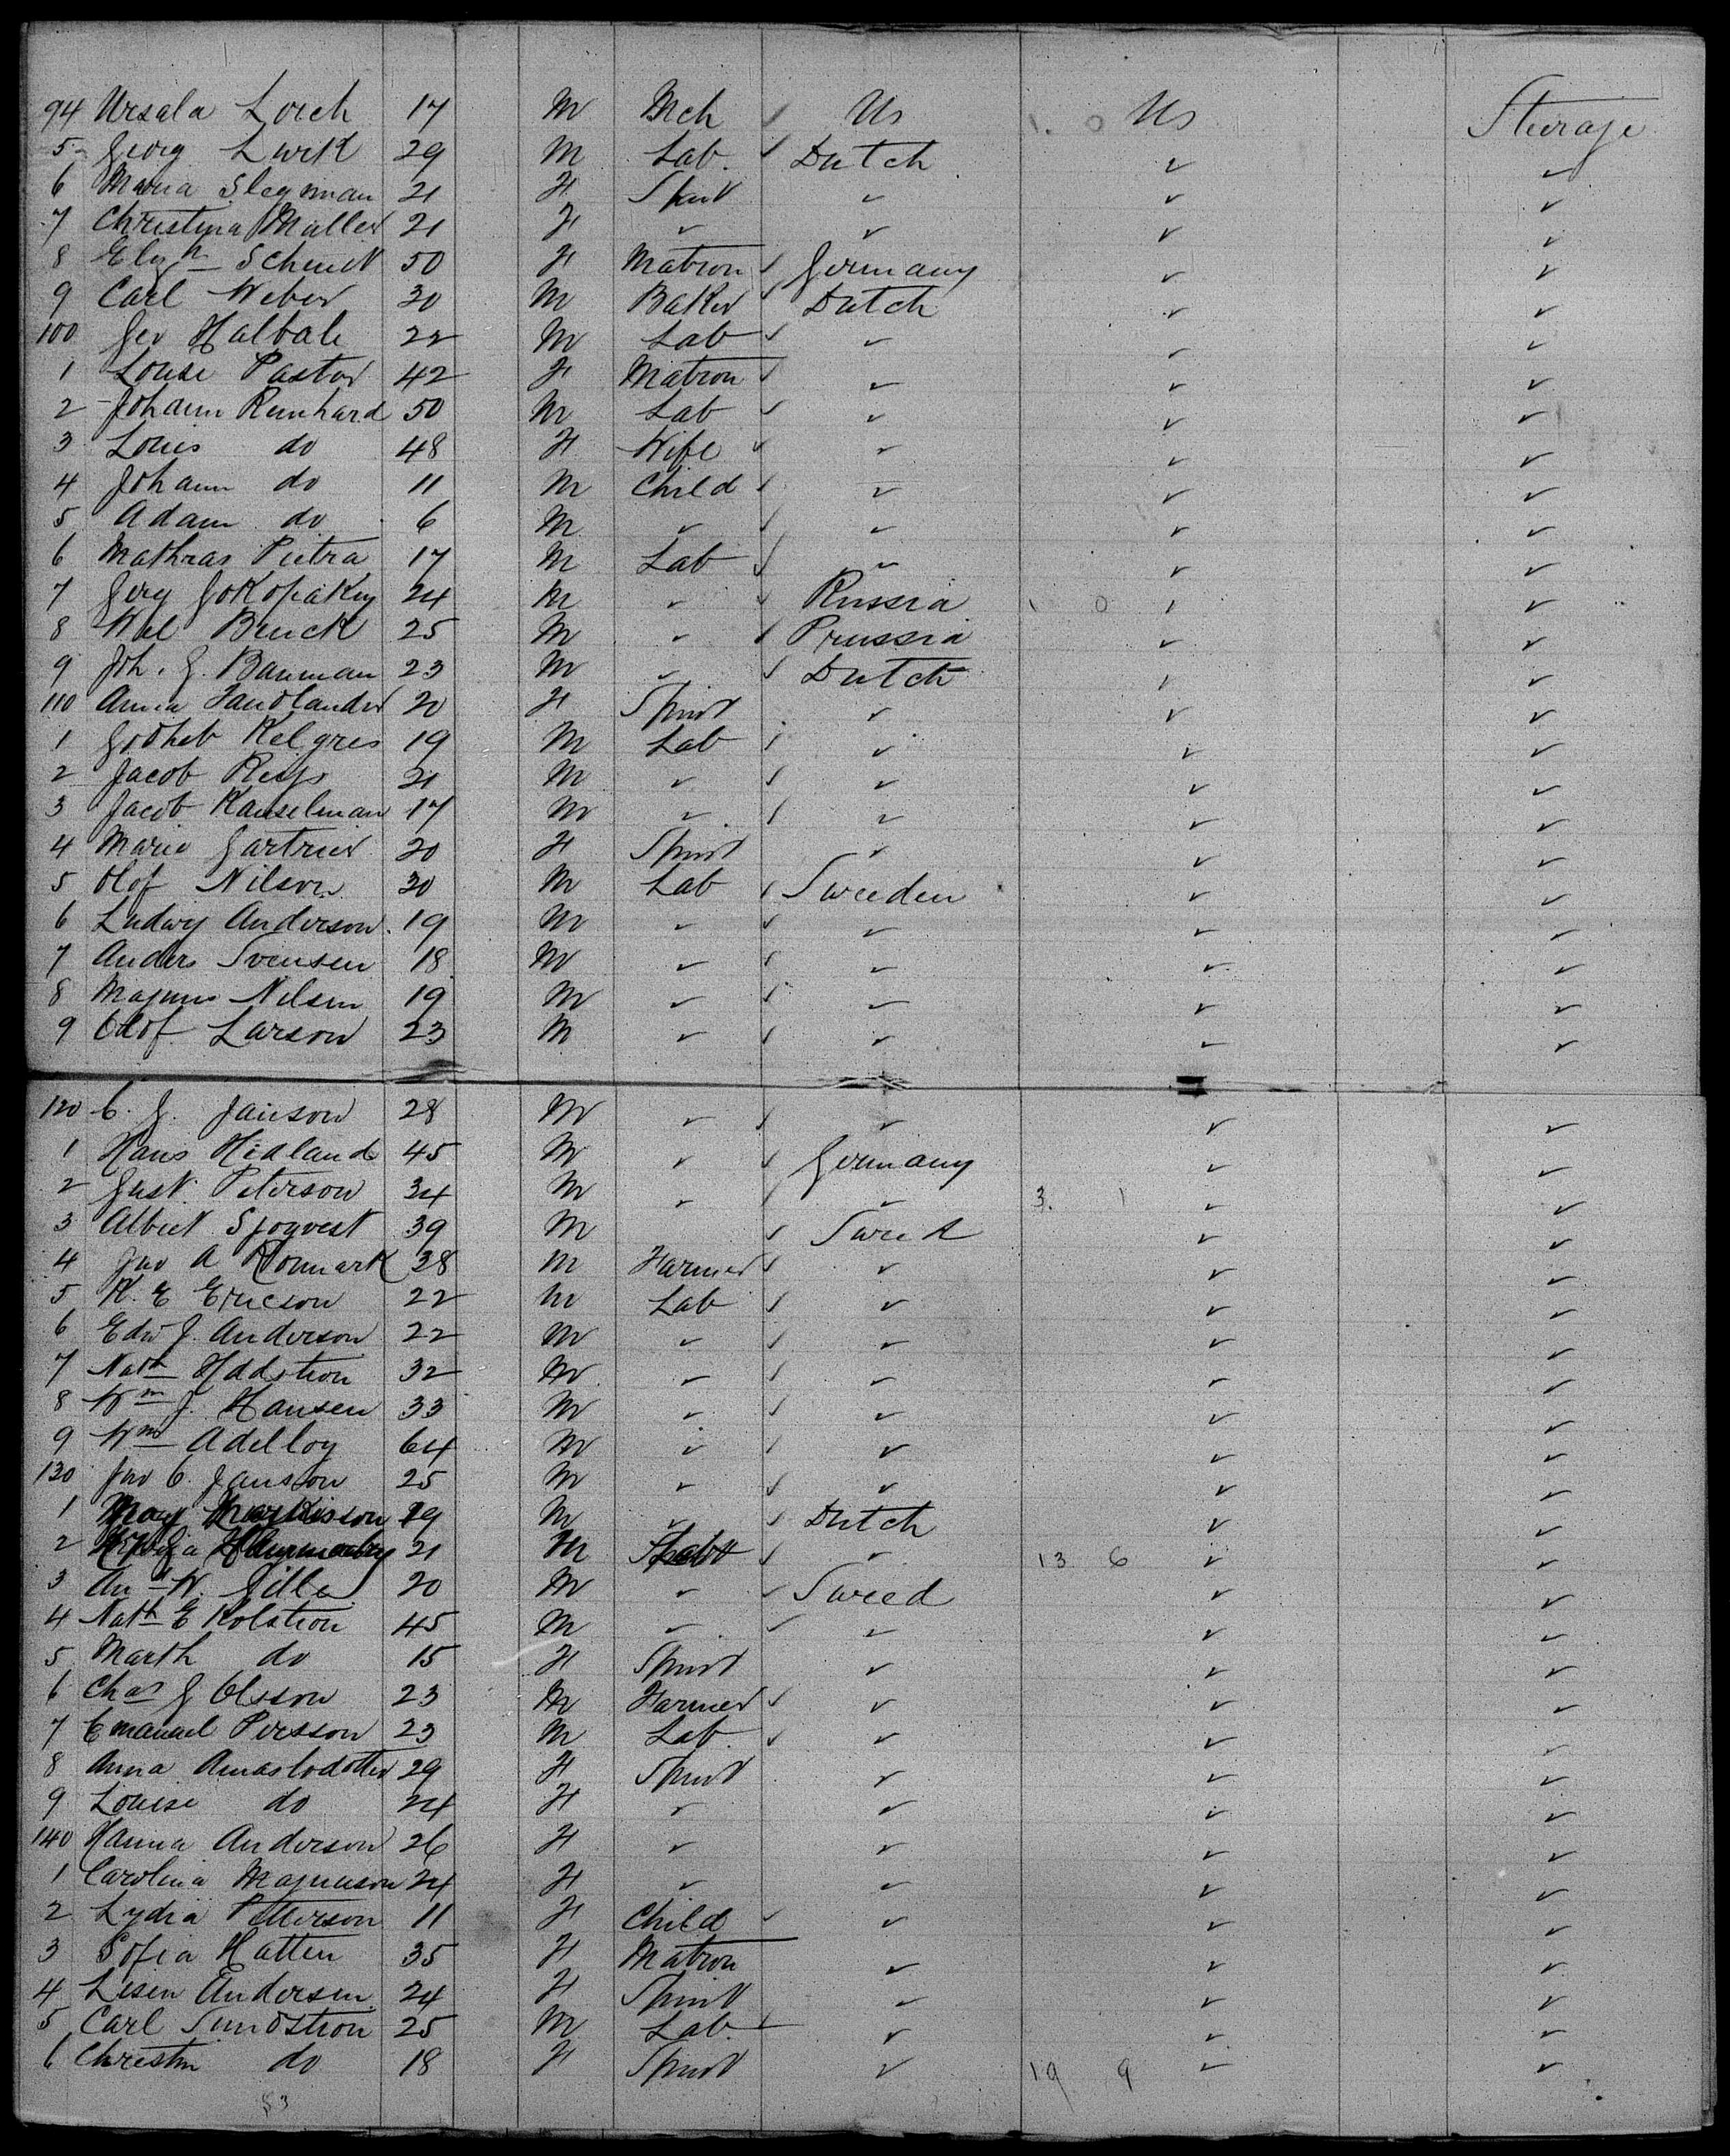 94 Ursala Lorch 17 M Mch ✓ Us 1. 0 Us Sterage
5 Georg Lurk 29 M Lab. ✓ Dutch ✓ ✓
6 Maria Slegman 21 F Spinst ✓ ✓ ✓
7 Christina Muller 21 F ✓ ✓ ✓ ✓
8 Elizh Schmidt 50 F Matron ✓ Germany ✓ ✓
9 Carl Weber 30 M Baker ✓ Dutch ✓ ✓
100 Geo Halbale 22 M Lab ✓ ✓ ✓ ✓
1 Louise Pastor 42 F Matron ✓ ✓ ✓ ✓
2 Johann Reinhard 50 M Lab ✓ ✓ ✓ ✓
3 Louis do 48 F Wife ✓ ✓ ✓ ✓
4 Johann do 11 M Child ✓ ✓ ✓ ✓
5 Adam do 6 M ✓ ✓ ✓ ✓ ✓
6 Mathias Pietra 17 M Lab ✓ ✓ ✓ ✓
7 24 M ✓ ✓ Russia 1 0 ✓ ✓
8 Wel Bruck 25 M ✓ ✓ Prussia ✓ ✓
9 Joh. G. Bauman 23 M ✓ ✓ Dutch ✓ ✓
110 Anna 20 F Spinst ✓ ✓ ✓
1 Gotheb Kelgres 19 M Lab ✓ ✓ ✓ ✓
2 Jacob 21 M ✓ ✓ ✓ ✓ ✓
3 Jacob Kanselman 17 M ✓ ✓ ✓ ✓ ✓
4 Marie Gartner 20 F Spinst ✓ ✓ ✓
5 Olof Nilson 30 M Lab ✓ Sweeden ✓ ✓
6 Ludwig Anderson 19 M ✓ ✓ ✓ ✓ ✓
7 Anders Svensen 18 M ✓ ✓ ✓ ✓ ✓
8 Magnus Nilsen 19 M ✓ ✓ ✓ ✓ ✓
9 Olof Larson 23 M ✓ ✓ ✓ ✓ ✓
120 C. J. Janson 28 M ✓ ✓ ✓ ✓ ✓
1 Hans Hialand 45 M ✓ ✓ Germany ✓ ✓
2 Gust. Peterson 34 M ✓ ✓ ✓ 3. 1 ✓ ✓
3 Albert Sjoqvest 39 M ✓ Swed ✓ ✓
4 Jno A Romark 38 M Farmer ✓ ✓ ✓ ✓
5 K. E Ericson 22 M Lab ✓ ✓ ✓ ✓
6 Edw J. Anderson 22 M ✓ ✓ ✓ ✓ ✓
7 Nath 32 M ✓ ✓ ✓ ✓ ✓
8 Wm J. Hansen 33 M ✓ ✓ ✓ ✓ ✓
9 Wm Adelloy 64 M ✓ ✓ ✓ ✓ ✓
130 Jno C. Janson 25 M ✓ ✓ ✓ ✓ ✓
1 19 M ✓ ✓ Dutch ✓ ✓
2 21 M ✓ ✓ 13 6 ✓ ✓
3 And W. Gille 20 M ✓ ✓ Sweed ✓ ✓
4 Nath E Kolstron 45 M ✓ ✓ ✓ ✓ ✓
5 Marth do 15 F Spinst ✓ ✓ ✓
6 Chas J Olsson 23 M Farmer ✓ ✓ ✓ ✓
7 Emanuel Persson 23 M Lab. ✓ ✓ ✓ ✓
8 Anna 29 F Spinst ✓ ✓ ✓
9 Louise do 24 F ✓ ✓ ✓ ✓
140 Hanna Anderson 26 F ✓ ✓ ✓ ✓
1 Carolina Magnuson 24 F ✓ ✓ ✓ ✓
2 Lydia Petterson 11 F Child ✓ ✓ ✓ ✓
3 Sofia Hatten 35 F Matron ✓ ✓ ✓
4 Lesen Andersen 24 F Spinst ✓ ✓ ✓
5 Carl Sundstron 25 M Lab ✓ ✓ ✓ ✓
6 Chrestin do 18 F Spinst ✓ 19 9 ✓ ✓
83